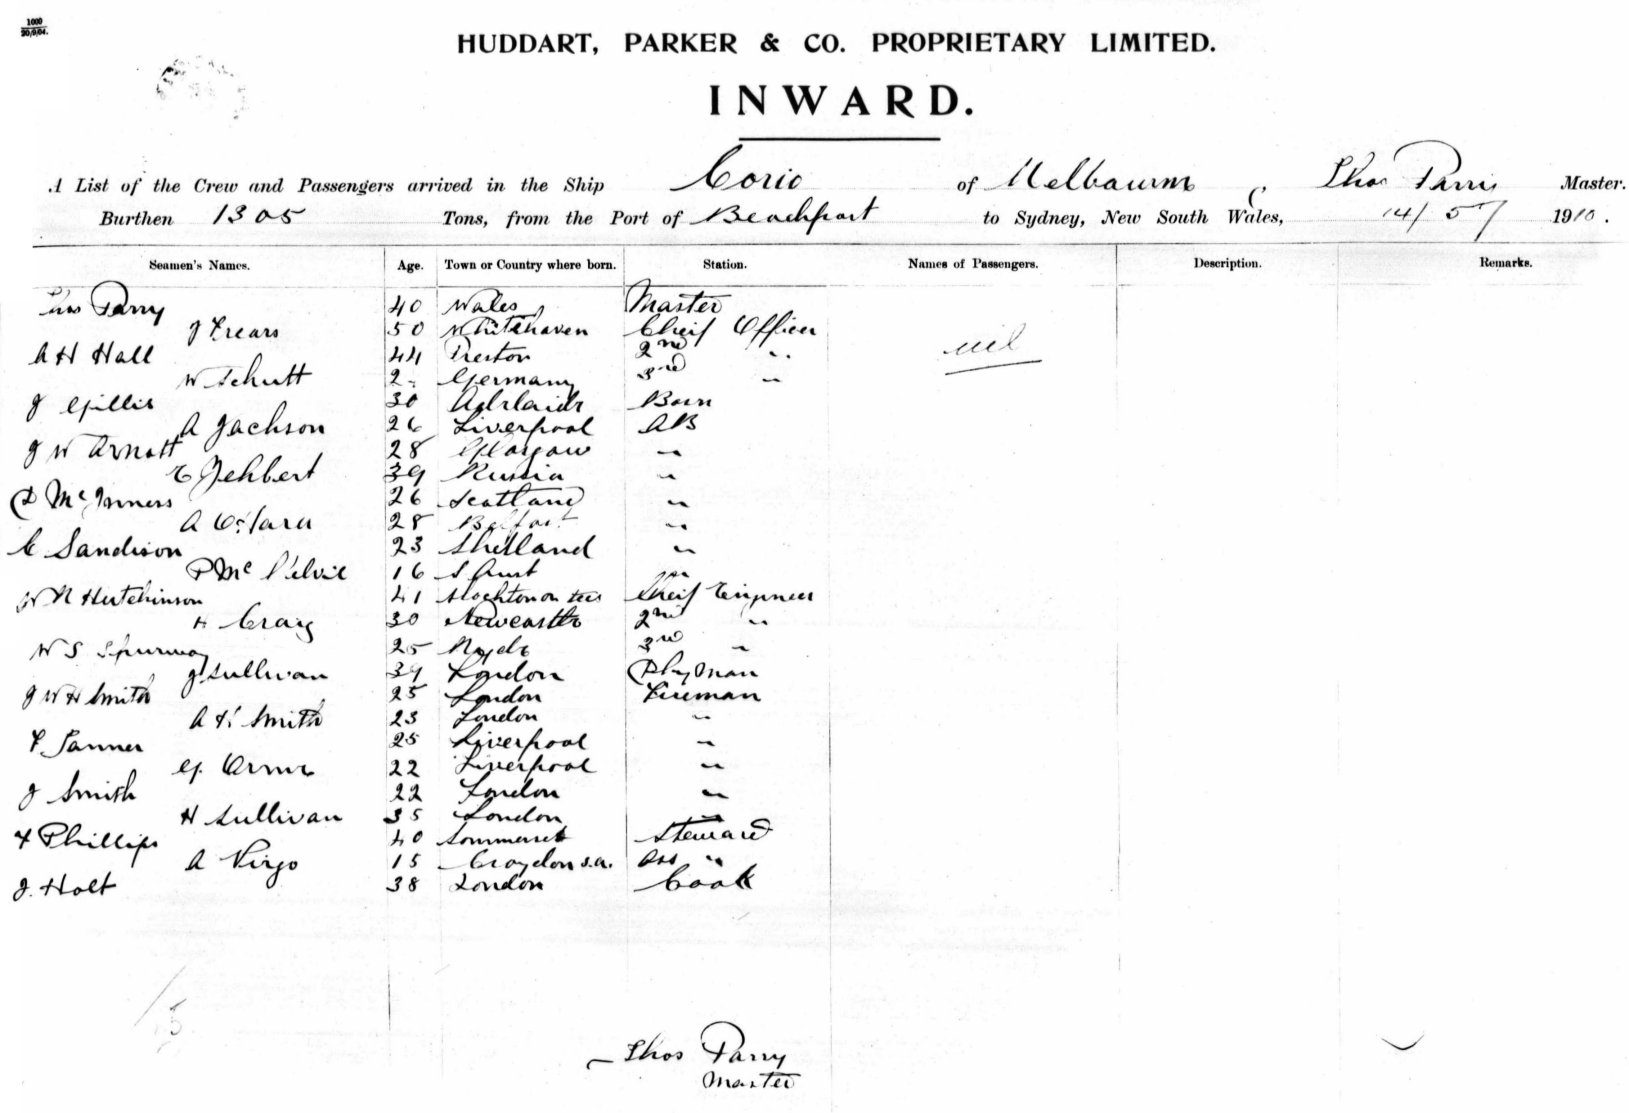 1000
20/9/04.
HUDDART, PARKER & CO. PROPRIETARY LIMITED.
INWARD.
A List of the Crew and Passengers arrived in the Ship Corio of Melbourne, Thos Parry Master.
Burthen 1305 Tons, from the Port of Beachport to Sydney, New South Wales, 14/5/ 1910.
Seamen's Names. Age. Town or Country where born. Station. Names of Passengers. Description. Remarks.
Thos Parry 40 Wales Master
J Frears 50 Whitehaven Cheif Officer
A H Hall 44 Preston 2nd "
nil
W Schutt Germany 3rd "
J Gillis 30 Adelaide Bosn
A Jackson 26 Liverpool AB
J W Arnott 28 Glasgow "
E Jehbert 39 Russia "
D McInness 26 Scotland "
A 28 Belfast "
C Sandison 23 Shetland "
P Mc 16 S Aust
W N Hutchinson 41 Stockton on tees Cheif Engineer
H Craig 30 Newcastle 2nd "
W S Spurway 25 Ryde 3rd "
J Sullivan 39 London Dkyman
J W H Smith 25 London Fireman
A H Smith 23 London "
F Tanner 25 Liverpool "
G. Orme 22 Liverpool "
J Smith 22 London "
H Sullivan 35 London "
F Phillips 40 Sommerset Steward
A Virgo 15 Croydon S.A. Ass "
J. Holt 38 London Cook
Thos Parry
Master